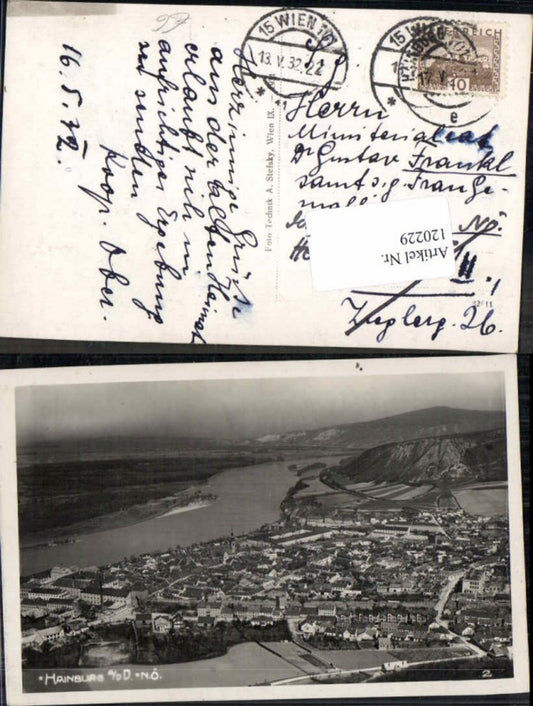 Herzinnige Grüsse
aus der alten Heimat
erlaubt sich in
aufrichtiger Ergebung
zu senden
Koop. Ober.
16. 5. 32.
15 WIEN 101
13. V. 32. 22
*
15 WIEN
*
e
10
Foto Technik A. Stefsky, Wien IX.
Herrn
Ministerialrat
Dr Gustav Frankl
samt s. g. Frau Ge-
NÖ.
III
Zieglerg. 26.
Artikel Nr.
120229
HAINBURG a/D. N.Ö.
2